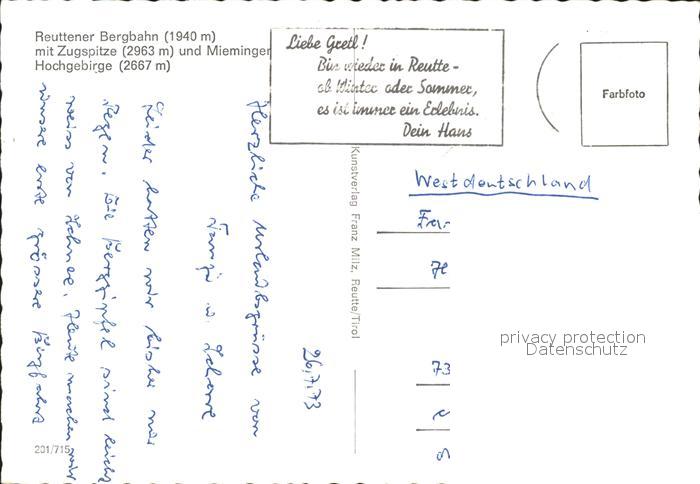 Reuttener Bergbahn (1940 m)
mit Zugspitze (2963 m) und Mieminger
Hochgebirge (2667 m)
Liebe Gretl!
Bin wieder in Reutte -
ob Winter oder Sommer,
es ist immer ein Erlebnis.
Dein Hans
Farbfoto
26.7.73
Herzliche Urlaubsgrüsse von
Leider hatten wir bisher nur
Regen. Die Berggipfel sind leicht
weiss von Schnee. Heute machen wir
unsere erste grössere
Kunstverlag Franz Milz, Reutte/Tirol
Westdeutschland
73
privacy protection
Datenschutz
201/715